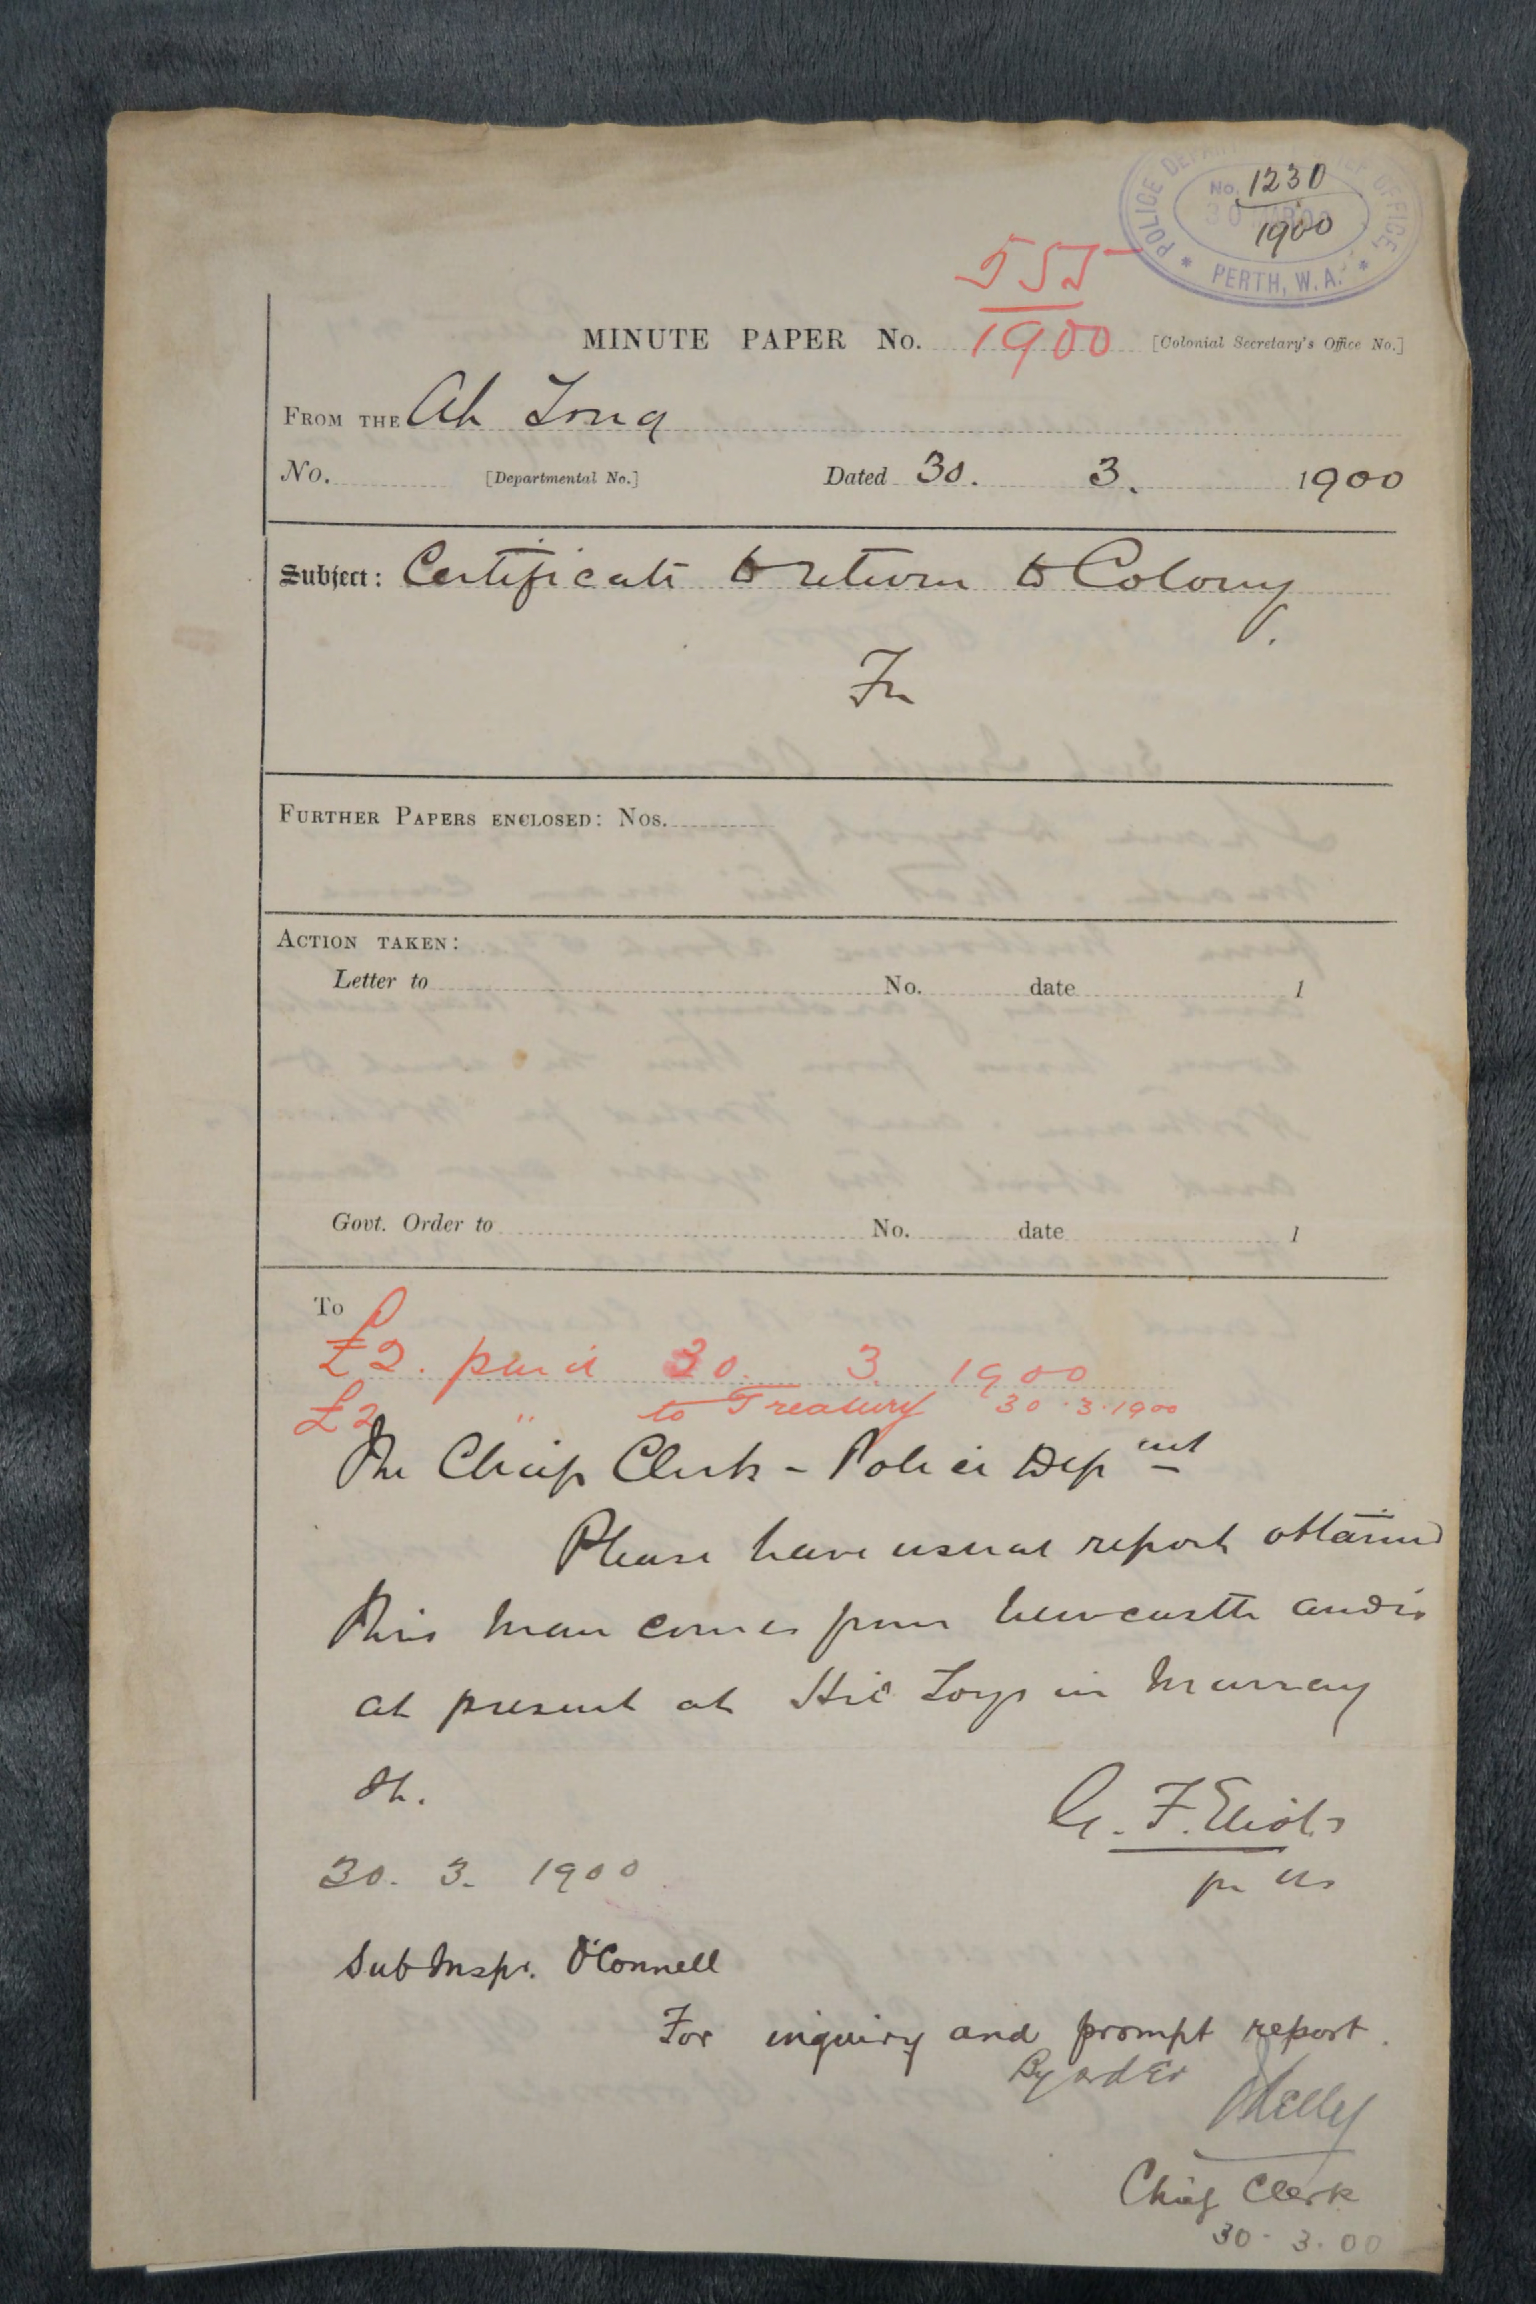 POLICE DEPARTMENT CHIEF OFFICE,
No. 1230
30 MAR 00
1900
* PERTH, W.A. *
555
1900
MINUTE PAPER No. [Colonial Secretary's Office No.]
FROM THE Ah Tong
No. [Departmental No.] Dated 30. 3. 1900
Subject: Certificate to return to Colony.
FURTHER PAPERS ENCLOSED: Nos.
ACTION TAKEN:
Letter to No. date 1
Govt. Order to No. date 1
To
£2. paid 30. 3. 1900
£2 " to Treasury 30.3.1900
The Chief Clerk - Police Depmt
Please have usual report obtained
This man comes from Newcastle and is
at present at Hie Loys in Murray
St.
G. F. Eliot
30. 3. 1900
Sub Inspr. O'Connell
For inquiry and prompt report.
By order
Chief Clerk
30-3.00